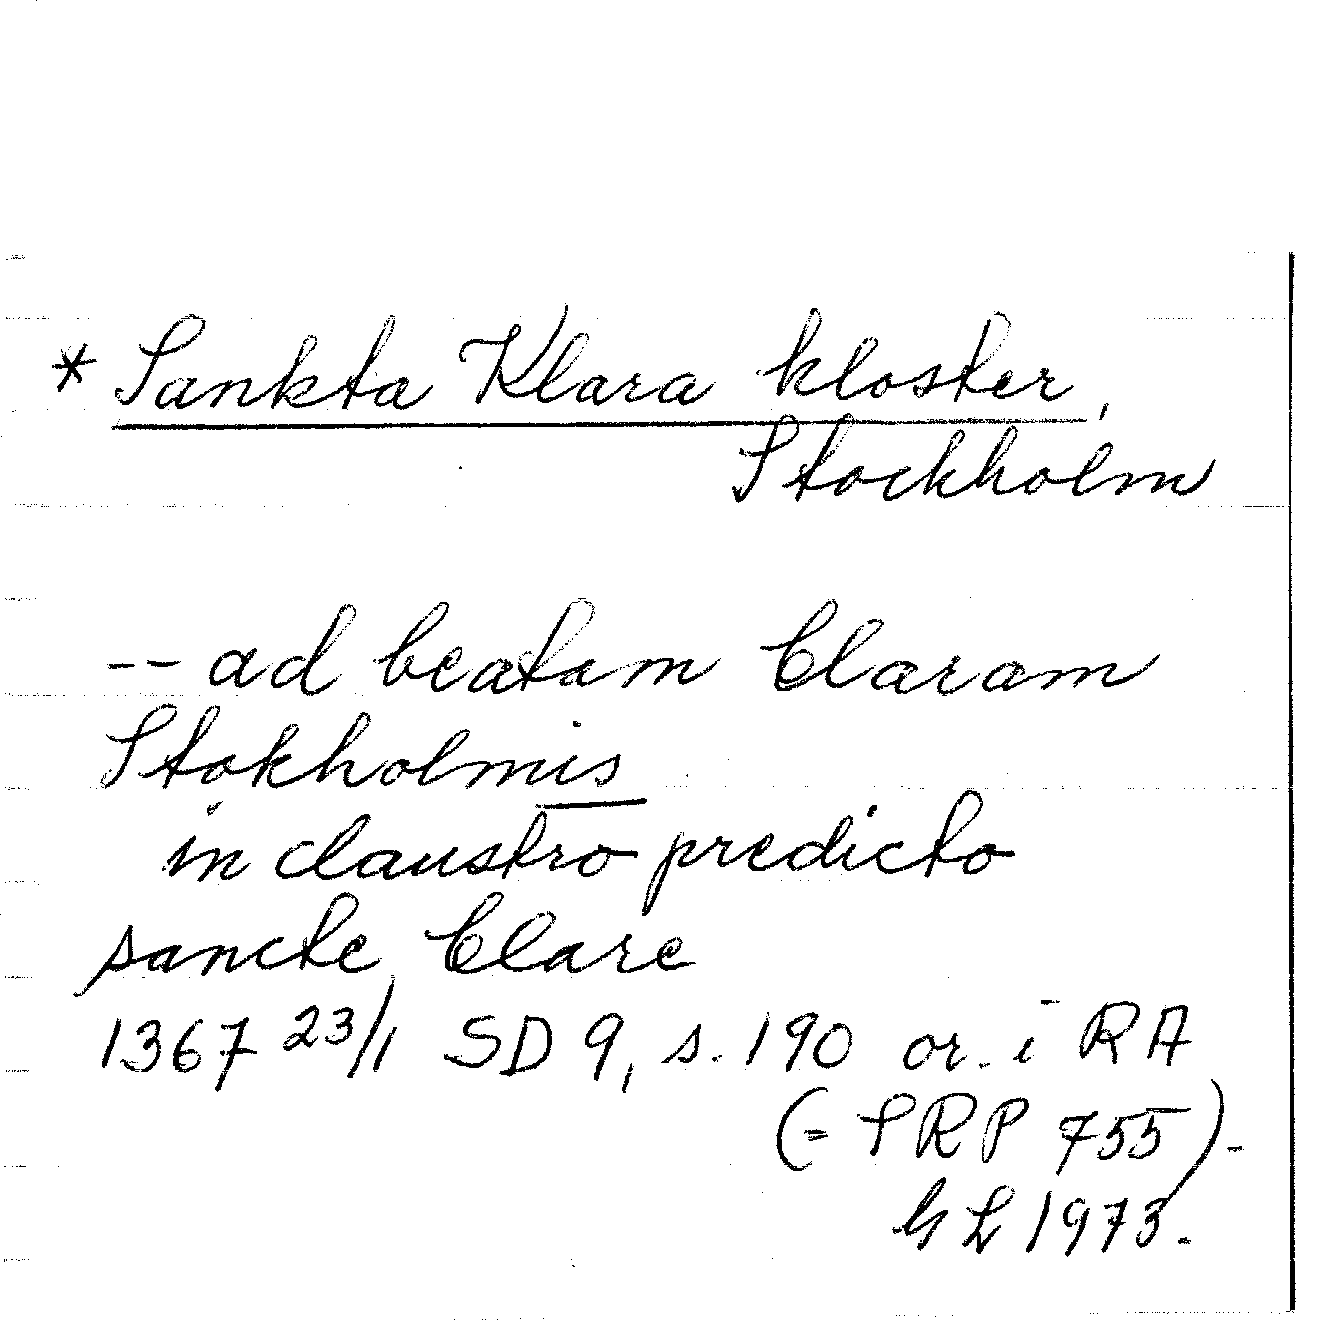 * Sankta Klara kloster,
Stockholm
-- ad beatam Claram
Stokholmis
in claustro predicto
sancte Clare
1367 23/1 SD 9, s. 190 or. i RA
(= SRP 755).-
GL 1973.